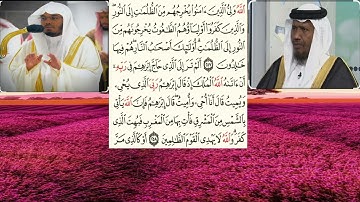 ٱللَّهُ وَلِىُّ ٱلَّذِينَ ءَامَنُوا۟ يُخْرِجُهُم مِّنَ ٱلظُّلُمَٰتِ إِلَى ٱلنُّورِ
وَٱلَّذِينَ كَفَرُوٓا۟ أَوْلِيَآؤُهُمُ ٱلطَّٰغُوتُ يُخْرِجُونَهُم مِّنَ
ٱلنُّورِ إِلَى ٱلظُّلُمَٰتِ أُو۟لَٰٓئِكَ أَصْحَٰبُ ٱلنَّارِ هُمْ فِيهَا
خَٰلِدُونَ ٢٥٧ أَلَمْ تَرَ إِلَى ٱلَّذِى حَآجَّ إِبْرَٰهِۦمَ فِى رَبِّهِۦٓ
أَنْ ءَاتَىٰهُ ٱللَّهُ ٱلْمُلْكَ إِذْ قَالَ إِبْرَٰهِۦمُ رَبِّىَ ٱلَّذِى يُحْىِۦ
وَيُمِيتُ قَالَ أَنَا۠ أُحْىِۦ وَأُمِيتُ قَالَ إِبْرَٰهِۦمُ فَإِنَّ ٱللَّهَ يَأْتِى
بِٱلشَّمْسِ مِنَ ٱلْمَشْرِقِ فَأْتِ بِهَا مِنَ ٱلْمَغْرِبِ فَبُهِتَ ٱلَّذِى
كَفَرَ وَٱللَّهُ لَا يَهْدِى ٱلْقَوْمَ ٱلظَّٰلِمِينَ ٢٥٨ أَوْ كَٱلَّذِى مَرَّ